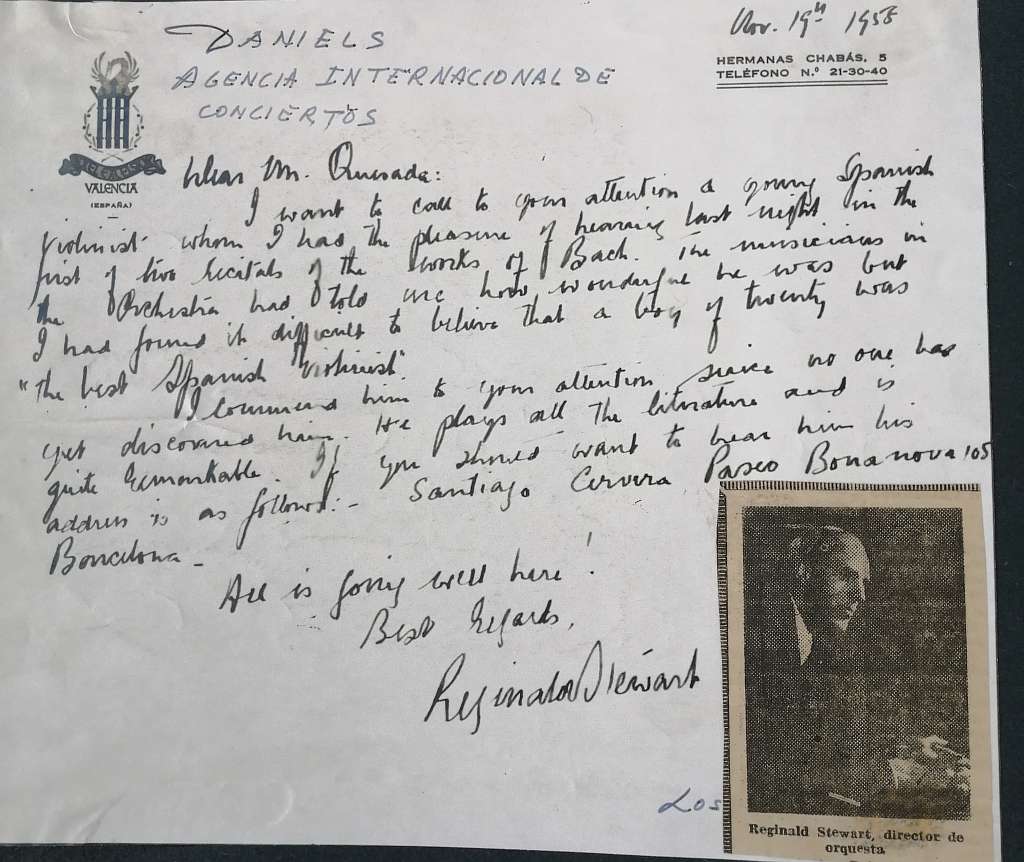 Nov. 19th 1958
HERMANAS CHABÁS, 5
TELÉFONO N.º 21-30-40
DANIELS
AGENCIA INTERNACIONAL DE
CONCIERTOS
VALENCIA
(ESPAÑA)
Dear Mr. Quesada:
I want to call to your attention a young Spanish
violinist whom I had the pleasure of hearing last night in the
first of two recitals of the works of Bach. The musicians in
the Orchestra had told me how wonderful he was but
I had found it difficult to believe that a boy of twenty was
"the best Spanish violinist".
I commend him to your attention since no one has
yet discovered him. He plays all the literature and is
quite remarkable. If you should want to hear him his
address is as follows:- Santiago Cervera Paseo Bonanova 105
Barcelona -
All is going well here!
Best regards,
Reginald Stewart
Los
Reginald Stewart, director de
orquesta